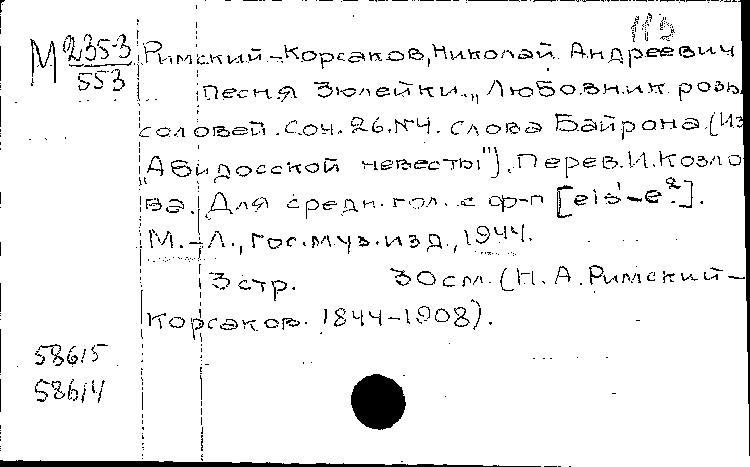 113
М 2353/553
Римский-Корсаков, Николай Андреевич
Песня Зюлейки. „Любовник розы
соловей. Соч. 26. №4. Слова Байрона. (Из
„Абидосской невесты"). Перев. И. Козло
ва. Для средн. гол. с ф-п [eis'-e²].
М.-Л., Гос. муз. изд., 1944.
3 стр. 30 см. (Н. А. Римский-
Корсаков. 1844-1908).
58615
58614